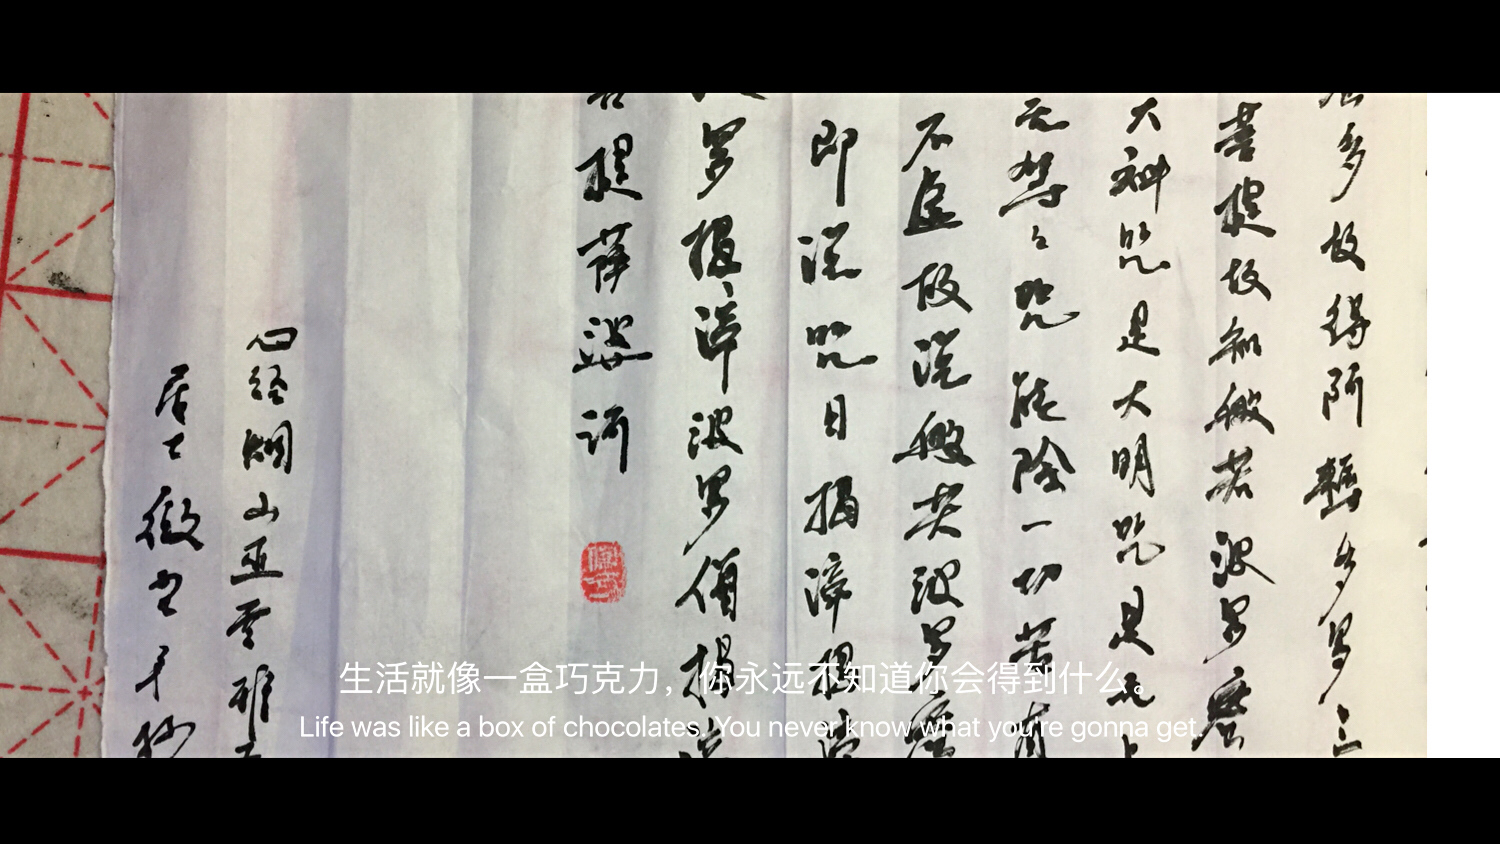 多故得阿耨多罗三
菩提故知般若波罗蜜
大神咒是大明咒是无上
无等々咒能除一切苦真
不虚故说般若波罗蜜
即说咒曰揭谛揭谛
波罗揭谛波罗僧揭谛
菩提萨婆诃
心经烟山亚雪雅
居士徽堂手抄
生活就像一盒巧克力，你永远不知道你会得到什么。
Life was like a box of chocolates. You never know what you're gonna get.